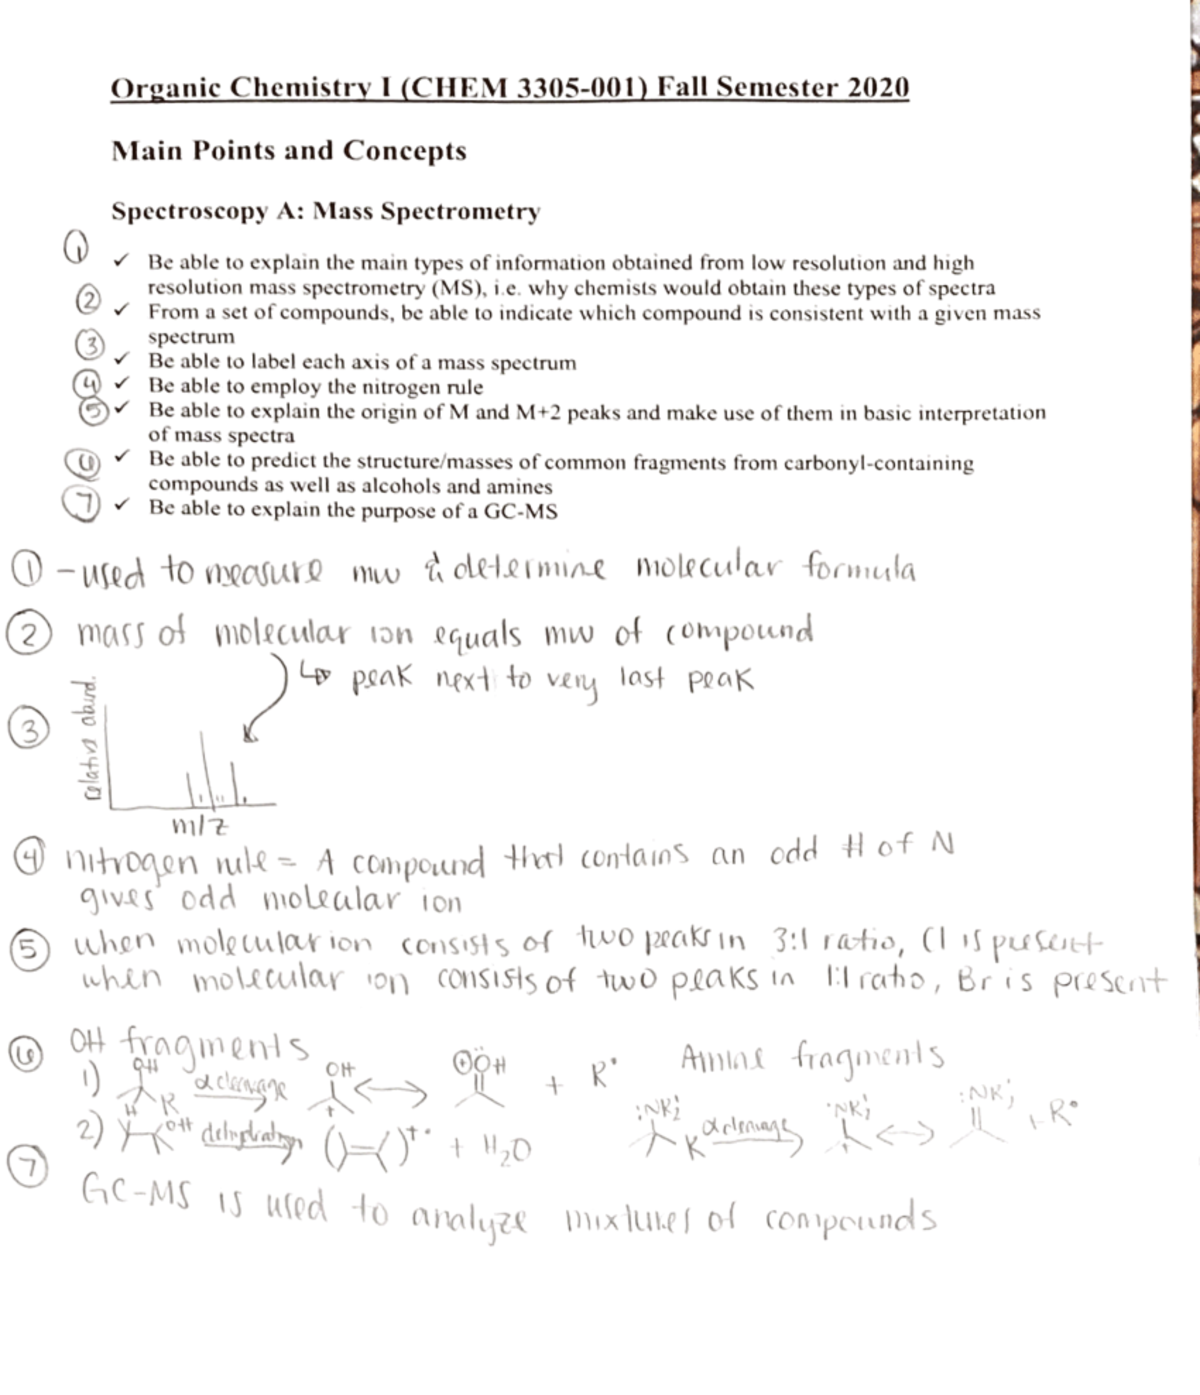 Organic Chemistry I (CHEM 3305-001) Fall Semester 2020
Main Points and Concepts
Spectroscopy A: Mass Spectrometry
① ✓ Be able to explain the main types of information obtained from low resolution and high
resolution mass spectrometry (MS), i.e. why chemists would obtain these types of spectra
② ✓ From a set of compounds, be able to indicate which compound is consistent with a given mass
spectrum
③ ✓ Be able to label each axis of a mass spectrum
④ ✓ Be able to employ the nitrogen rule
⑤ ✓ Be able to explain the origin of M and M+2 peaks and make use of them in basic interpretation
of mass spectra
⑥ ✓ Be able to predict the structure/masses of common fragments from carbonyl-containing
compounds as well as alcohols and amines
⑦ ✓ Be able to explain the purpose of a GC-MS
① - used to measure mw & determine molecular formula
② mass of molecular ion equals mw of compound
↳ peak next to very last peak
③ relative abund.
m/z
④ nitrogen rule = A compound that contains an odd # of N
gives odd molecular ion
⑤ when molecular ion consists of two peaks in 3:1 ratio, Cl is present
when molecular ion consists of two peaks in 1:1 ratio, Br is present
⑥ OH fragments
1) OH H R α cleavage OH + ⟷ ⊕ÖH + R•
2) H OH dehydration ( )+• + H₂O
Amine fragments
:NR₂ R α cleavage •NR₂ + ⟷ :NR₂ + R•
⑦ GC-MS is used to analyze mixtures of compounds